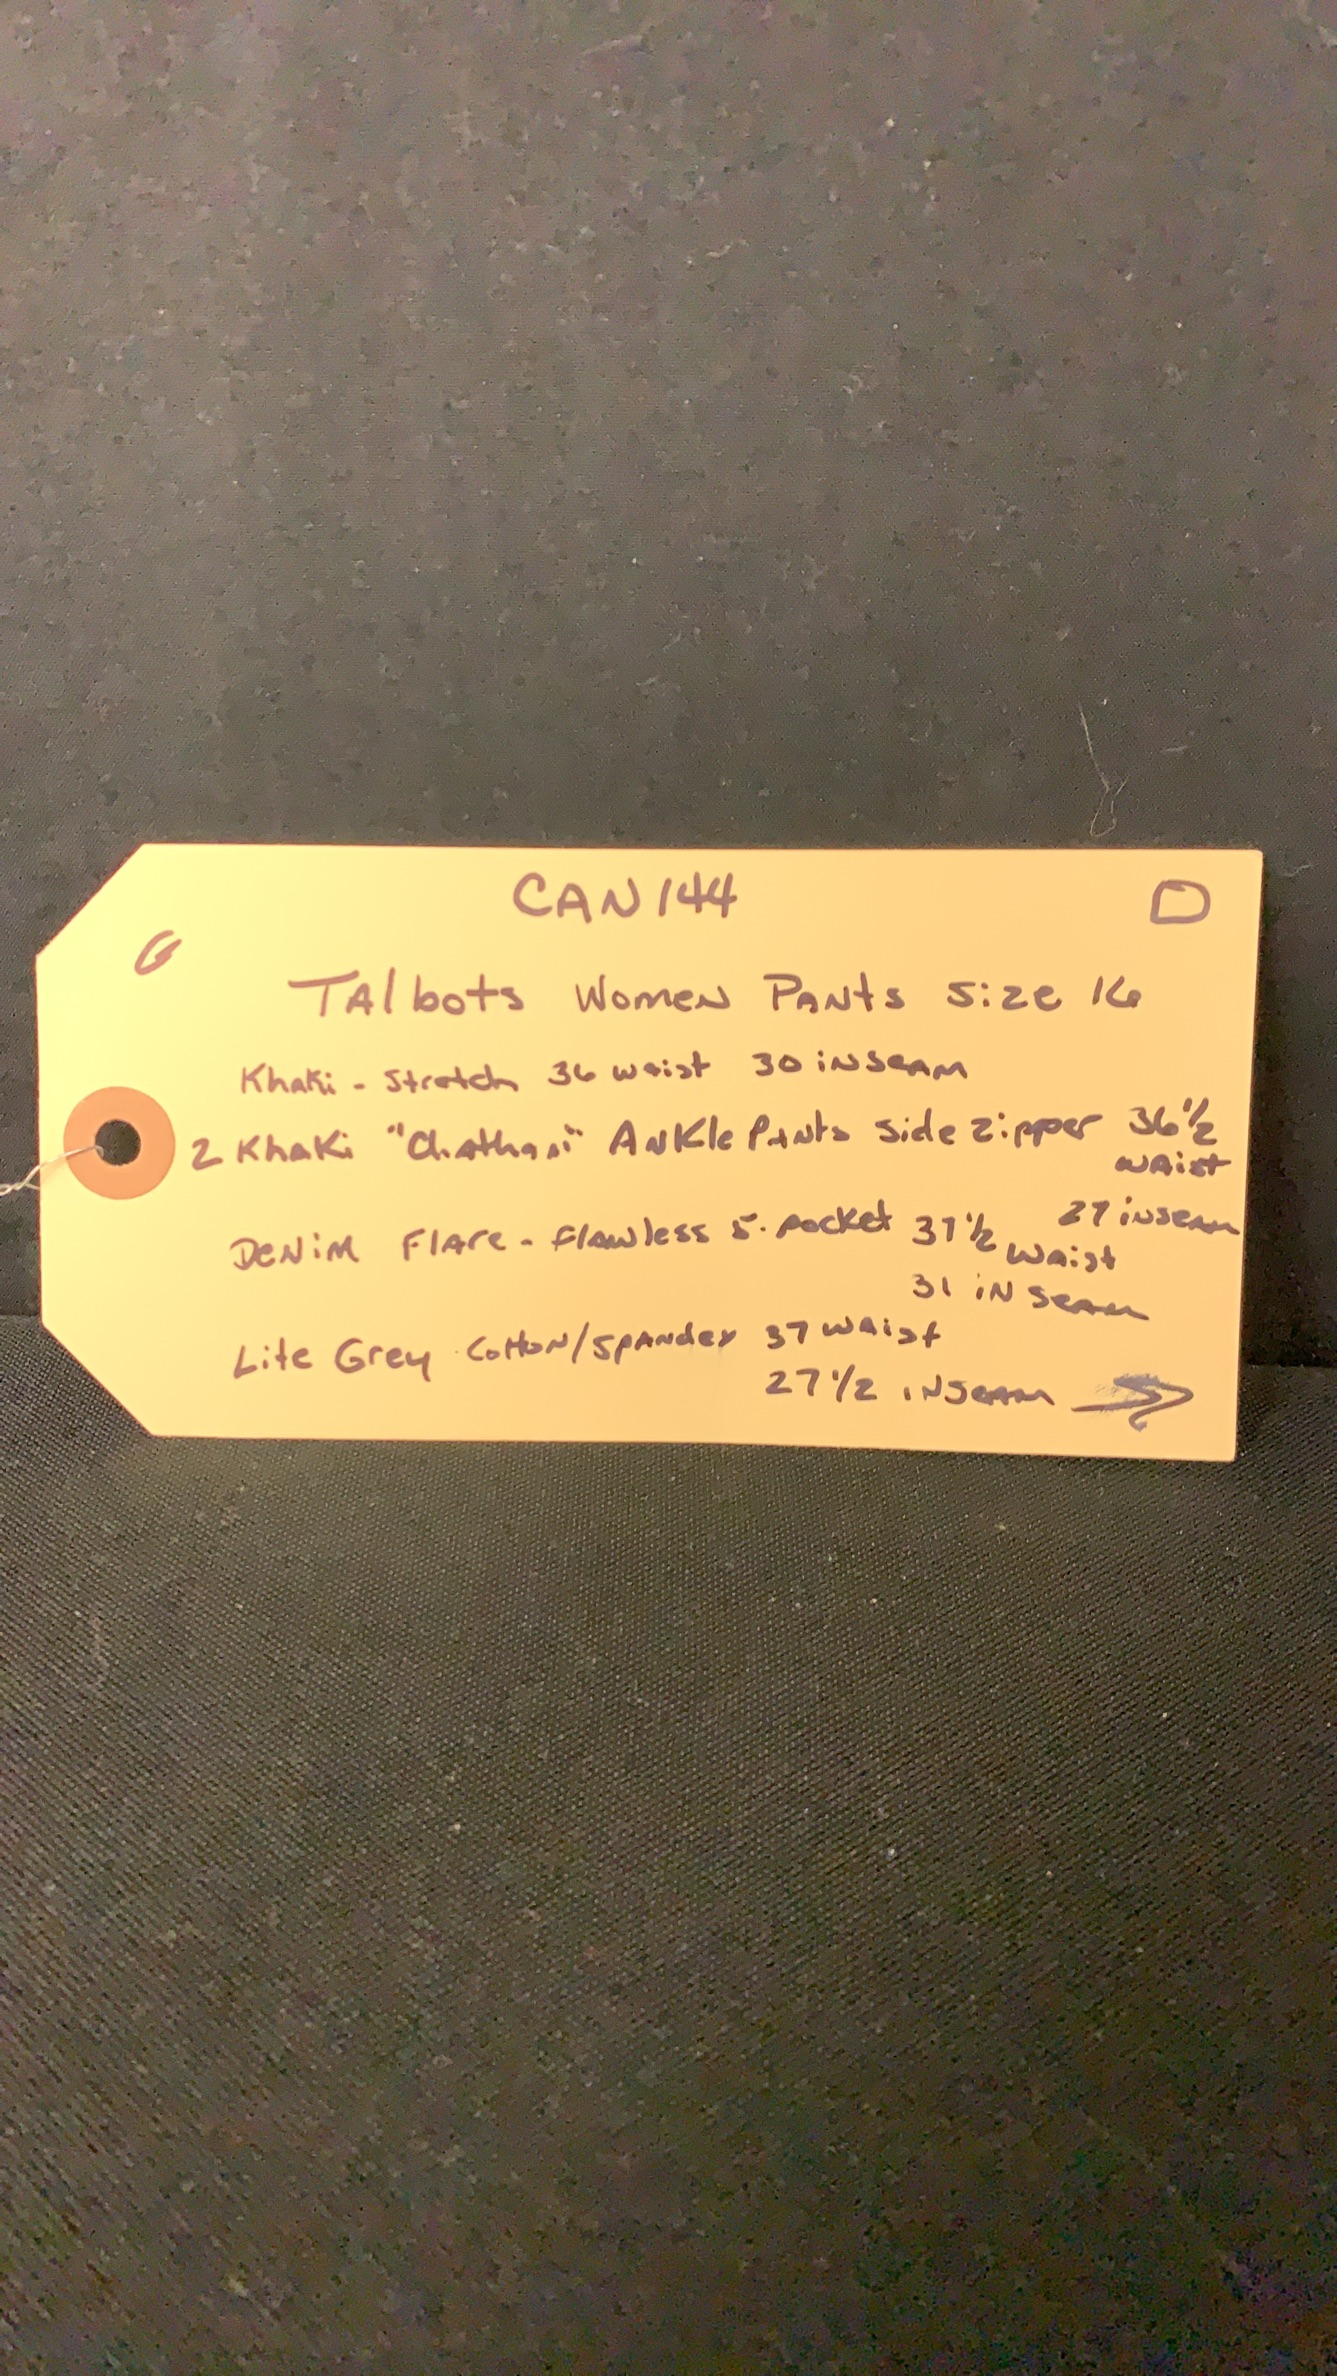 CAN 144
G
Talbots Women Pants Size 16
Khaki - Stretch 36 waist 30 inseam
2 Khaki "Chatham" Ankle Pants side zipper 36 1/2
waist
27 inseam
Denim Flare - flawless 5-pocket 37 1/2
waist
31 inseam
Lite Grey Cotton/Spandex 37 waist
27 1/2 inseam